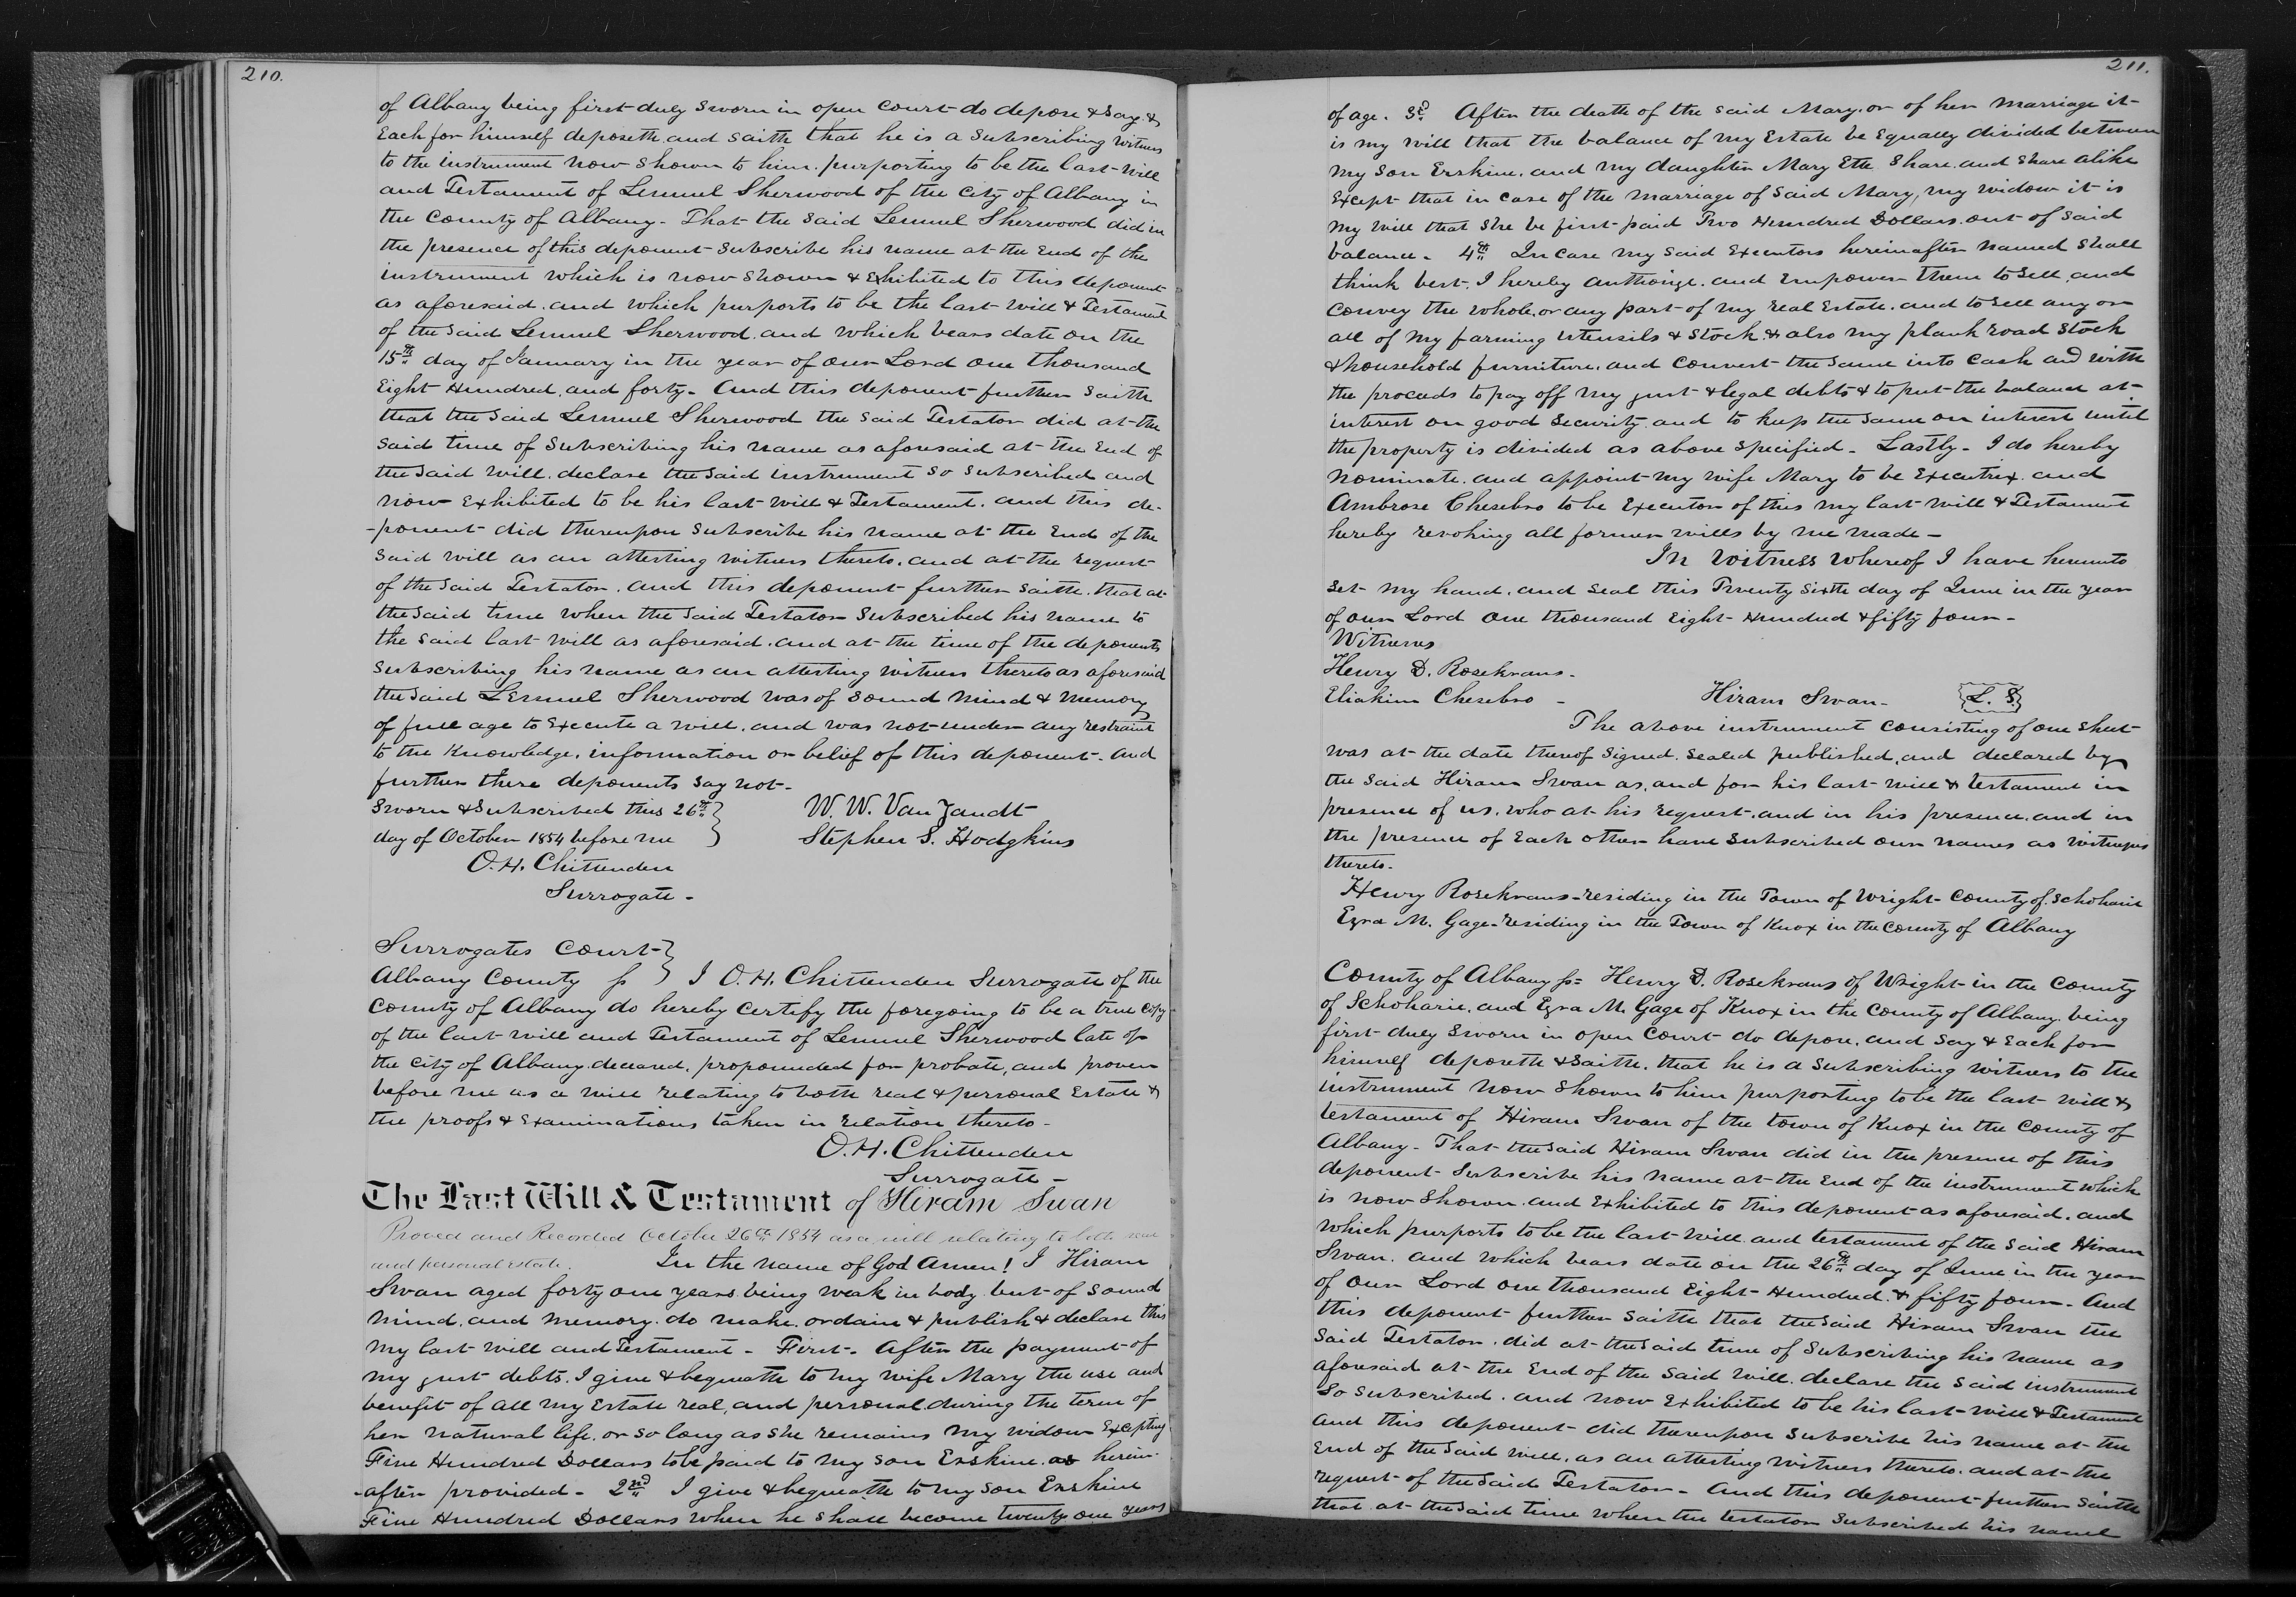 210.
of Albany being first duly sworn in open court do depose & say &
Each for himself deposeth and saith that he is a Subscribing witness
to the instrument now shown to him purporting to be the last will
and Testament of Lemuel Sherwood of the City of Albany in
the County of Albany - That the said Lemuel Sherwood did in
the presence of this deponent subscribe his name at the End of the
instrument which is now shown & Exhibited to this deponent
as aforesaid, and which purports to be the last will & Testament
of the said Lemuel Sherwood and which bears date on the
15th day of January in the year of our Lord one thousand
Eight Hundred, and forty - And this deponent further saith
that the said Lemuel Sherwood the said Testator did at the
said time of Subscribing his name as aforesaid at the End of
the said will, declare the said instrument so subscribed and
now Exhibited to be his last will & Testament. and this de-
-ponent did thereupon subscribe his name at the End of the
said will as an attesting witness thereto. and at the request
of the said Testator. and this deponent further saith. that at
the said time when the said Testator Subscribed his name to
the said last will as aforesaid. and at the time of the deponents
subscribing his name as an attesting witness thereto as aforesaid
the said Lemuel Sherwood was of sound mind & memory
of full age to Execute a will, and was not under any restraint
to the knowledge, information or belief of this deponent - And
further these deponents say not -
Sworn & Subscribed this 26th
day of October 1854 before me
O. H. Chittenden
Surrogate -
W. W. Van Zandt
Stephen S. Hodgkins
Surrogates Court
Albany County ss } I O. H. Chittenden Surrogate of the
County of Albany do hereby certify the foregoing to be a true copy
of the last will and Testament of Lemuel Sherwood late of
the City of Albany deceased, propounded for probate, and proven
before me as a will relating to both real & personal Estate &
the proofs & Examinations taken in relation thereto -
O. H. Chittenden
Surrogate -
The Last Will & Testament of Hiram Swan
Proved and Recorded October 26th 1854 as a will relating to both real
and personal Estate. In the name of God Amen! I Hiram
Swan aged forty one years being weak in body but of sound
mind, and memory. do make. ordain & publish & declare this
my last will and Testament - First - After the payment of
my just debts. I give & bequeath to my wife Mary the use and
benefit of all my Estate real, and personal, during the term of
her natural life, or so long as she remains my widow Excepting
Five Hundred Dollars to be paid to my son Erskine as herein-
-after provided - 2nd I give & bequeath to my son Erskine
Five Hundred Dollars when he shall become twenty one years
211.
of age. 3d After the death of the said Mary. or of her marriage it
is my will that the balance of my Estate be Equally divided between
my son Erskine. and my daughter Mary Ette Share. and Share alike
Except that in case of the marriage of said Mary, my widow it is
my will that she be first paid Two Hundred Dollars out of said
balance - 4th In case my said Executors hereinafter named shall
think best, I hereby authorize. and Empower them to sell and
convey the whole, or any part of my real Estate. and to sell any or
all of my farming utensils & stock. & also my plank road stock
& household furniture, and convert the same into cash and with
the proceeds to pay off my just & legal debts & to put the balance at
interest on good security and to keep the same on interest until
the property is divided as above specified - Lastly - I do hereby
nominate. and appoint my wife Mary to be Executrix and
Ambrose Chesebro to be Executor of this my last will & Testament
hereby revoking all former wills by me made -
In Witness Whereof I have hereunto
set my hand, and seal this Twenty Sixth day of June in the year
of our Lord one thousand Eight Hundred & fifty four -
Witness
Henry D. Rosekrans -
Eliakim Chesebro - Hiram Swan - L. S
The above instrument consisting of one sheet
was at the date thereof signed. sealed published, and declared by
the said Hiram Swan as, and for his last will & testament in
presence of us. who at his request. and in his presence. and in
the presence of Each other have subscribed our names as witnesses
thereto.
Henry Rosekrans - residing in the Town of Wright - County of Schoharie
Ezra M. Gage - residing in the Town of Knox in the County of Albany
County of Albany ss - Henry D. Rosekrans of Wright in the County
of Schoharie, and Ezra M. Gage of Knox in the County of Albany. being
first duly sworn in open court do depose. and say & Each for
himself deposeth & saith. that he is a Subscribing witness to the
instrument now shown to him purporting to be the last will &
testament of Hiram Swan of the town of Knox in the County of
Albany - That the said Hiram Swan did in the presence of this
deponent subscribe his name at the End of the instrument which
is now shown. and Exhibited to this deponent as aforesaid. and
which purports to be the last will and testament of the said Hiram
Swan. and which bears date on the 26th day of June in the year
of our Lord one thousand Eight Hundred & fifty four - And
this deponent further saith that the said Hiram Swan the
said Testator. did at the said time of Subscribing his name as
aforesaid at the End of the said will. declare the said instrument
so subscribed. and now Exhibited to be his last will & Testament
and this deponent did thereupon subscribe his name at the
End of the said will. as an attesting witness thereto. and at the
request of the said Testator - And this deponent further saith
that at the said time when the testator subscribed his name